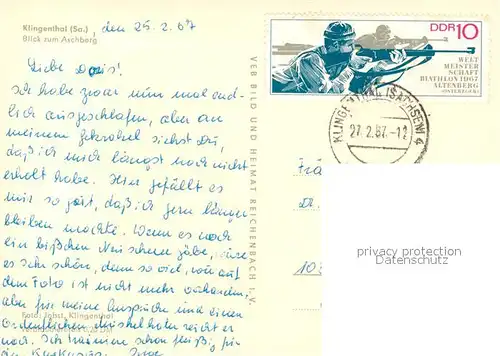 Klingenthal (Sa.), den 25.2.67
Blick zum Aschberg
Liebe Doris!
Ich habe zwar nun mal end-
lich ausgeschlafen, aber an
meinem siehst Du,
daß ich mich längst noch nicht
erholt habe. Hier gefällt es
mir so gut, daß ich gern länger
bleiben möchte. Wenn es noch
ein bißchen Neuschnee gäbe, wäre
es sehr schön, denn so viel, wie auf
dem Foto ist nicht mehr vorhanden,
aber für meine Ansprüche und einen
ordentlichen Muskelkater reicht es
noch. Ich trainiere schon fleißig für
den
Foto: Jobst, Klingenthal
VEB BILD UND HEIMAT REICHENBACH I. V.
DDR 10
WELT
MEISTER
SCHAFT
BIATHLON 1967
ALTENBERG
(OSTERZGEB.)
KLINGENTHAL (SACHSEN) 4
27.2.67.-12
privacy protection
Datenschutz